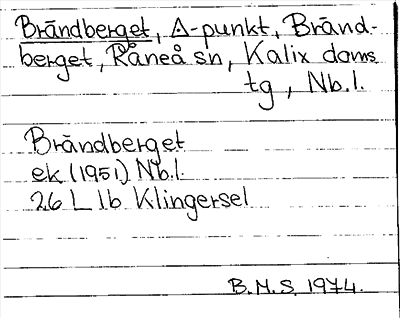 Brändberget, Δ-punkt, Bränd-
berget, Råneå sn, Kalix doms.
tg, Nb.l.
Brändberget
ek (1951) Nb.l.
26 L 1b Klingersel
B.M.S. 1974.